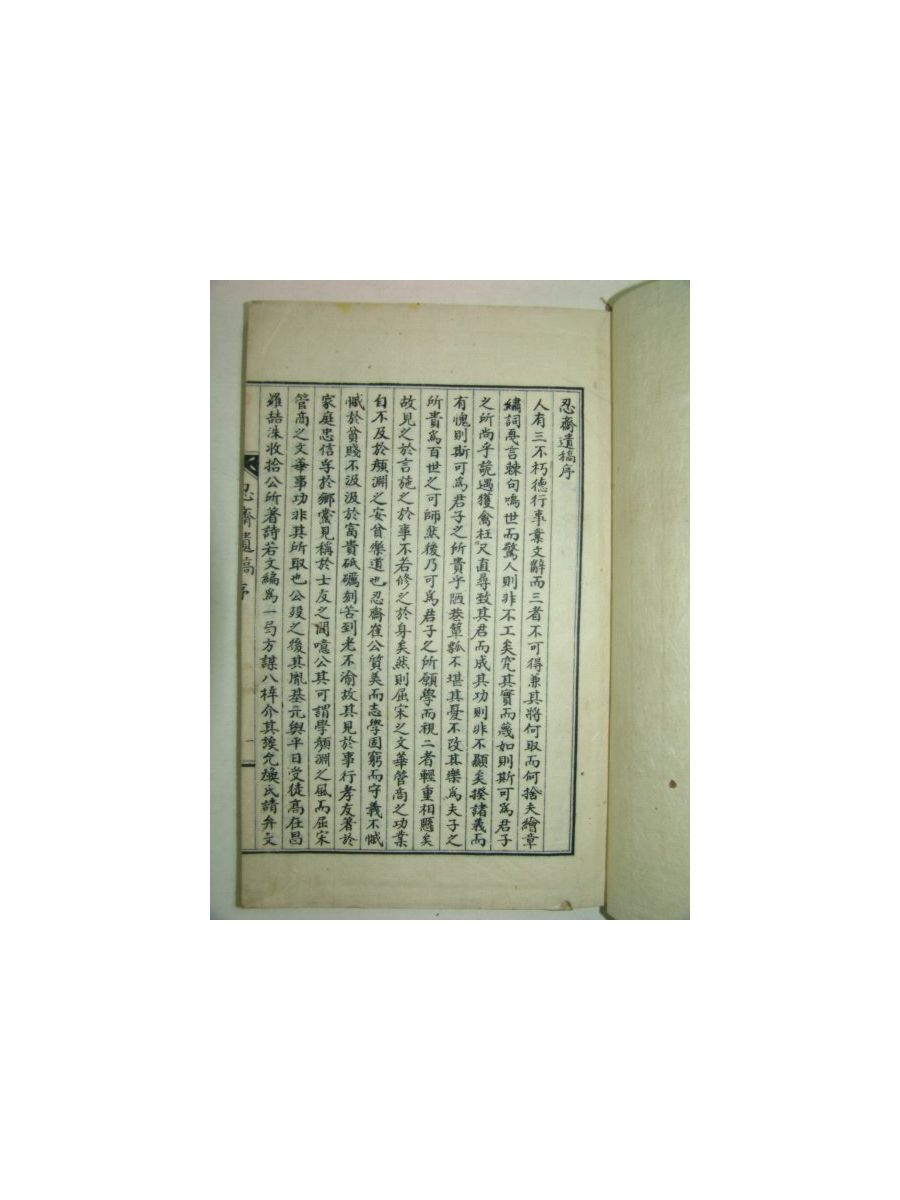 忍齋遺稿序
人有三不朽德行事業文辭而三者不可得兼其將何取而何捨夫繪章
繡詞惠言棘句鳴世而驚人則非不工矣究其實而蔑如則斯可爲君子
之所尚乎詭遇獲禽枉尺直尋致其君而成其功則非不顯矣揆諸義而
有愧則斯可爲君子之所貴乎陋巷簞瓢不堪其憂不改其樂爲夫子之
所貴爲百世之可師然後乃可爲君子之所願學而視二者輕重相懸矣
故見之於言施之於事不若修之於身矣然則屈宋之文華管商之功業
自不及於顏淵之安貧樂道也忍齋崔公質美而志學固窮而守義不慽
慽於貧賤不汲汲於富貴砥礪刻苦到老不渝故其見於事行孝友著於
家庭忠信孚於鄉黨見稱於士友之間噫公其可謂學顏淵之風而屈宋
管商之文華事功非其所取也公歿之後其胤基元與平日受徒高在昌
羅喆洙收拾公所著詩若文編爲一局方謀入梓介其族允煥氏請弁文
忍齋遺稿 序 一